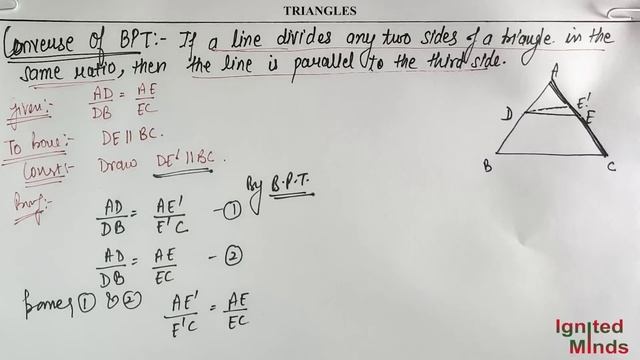 TRIANGLES
Converse of BPT:- If a line divides any two sides of a triangle in the
same ratio, then the line is parallel to the third side.
Given:- AD/DB = AE/EC
To prove:- DE || BC.
Const:- Draw DE' || BC.
Proof:-
AD/DB = AE'/E'C - ① By B.P.T.
AD/DB = AE/EC - ②
from eq ① & ② AE'/E'C = AE/EC
A
D
E'
E
B
C
Ignited
Minds